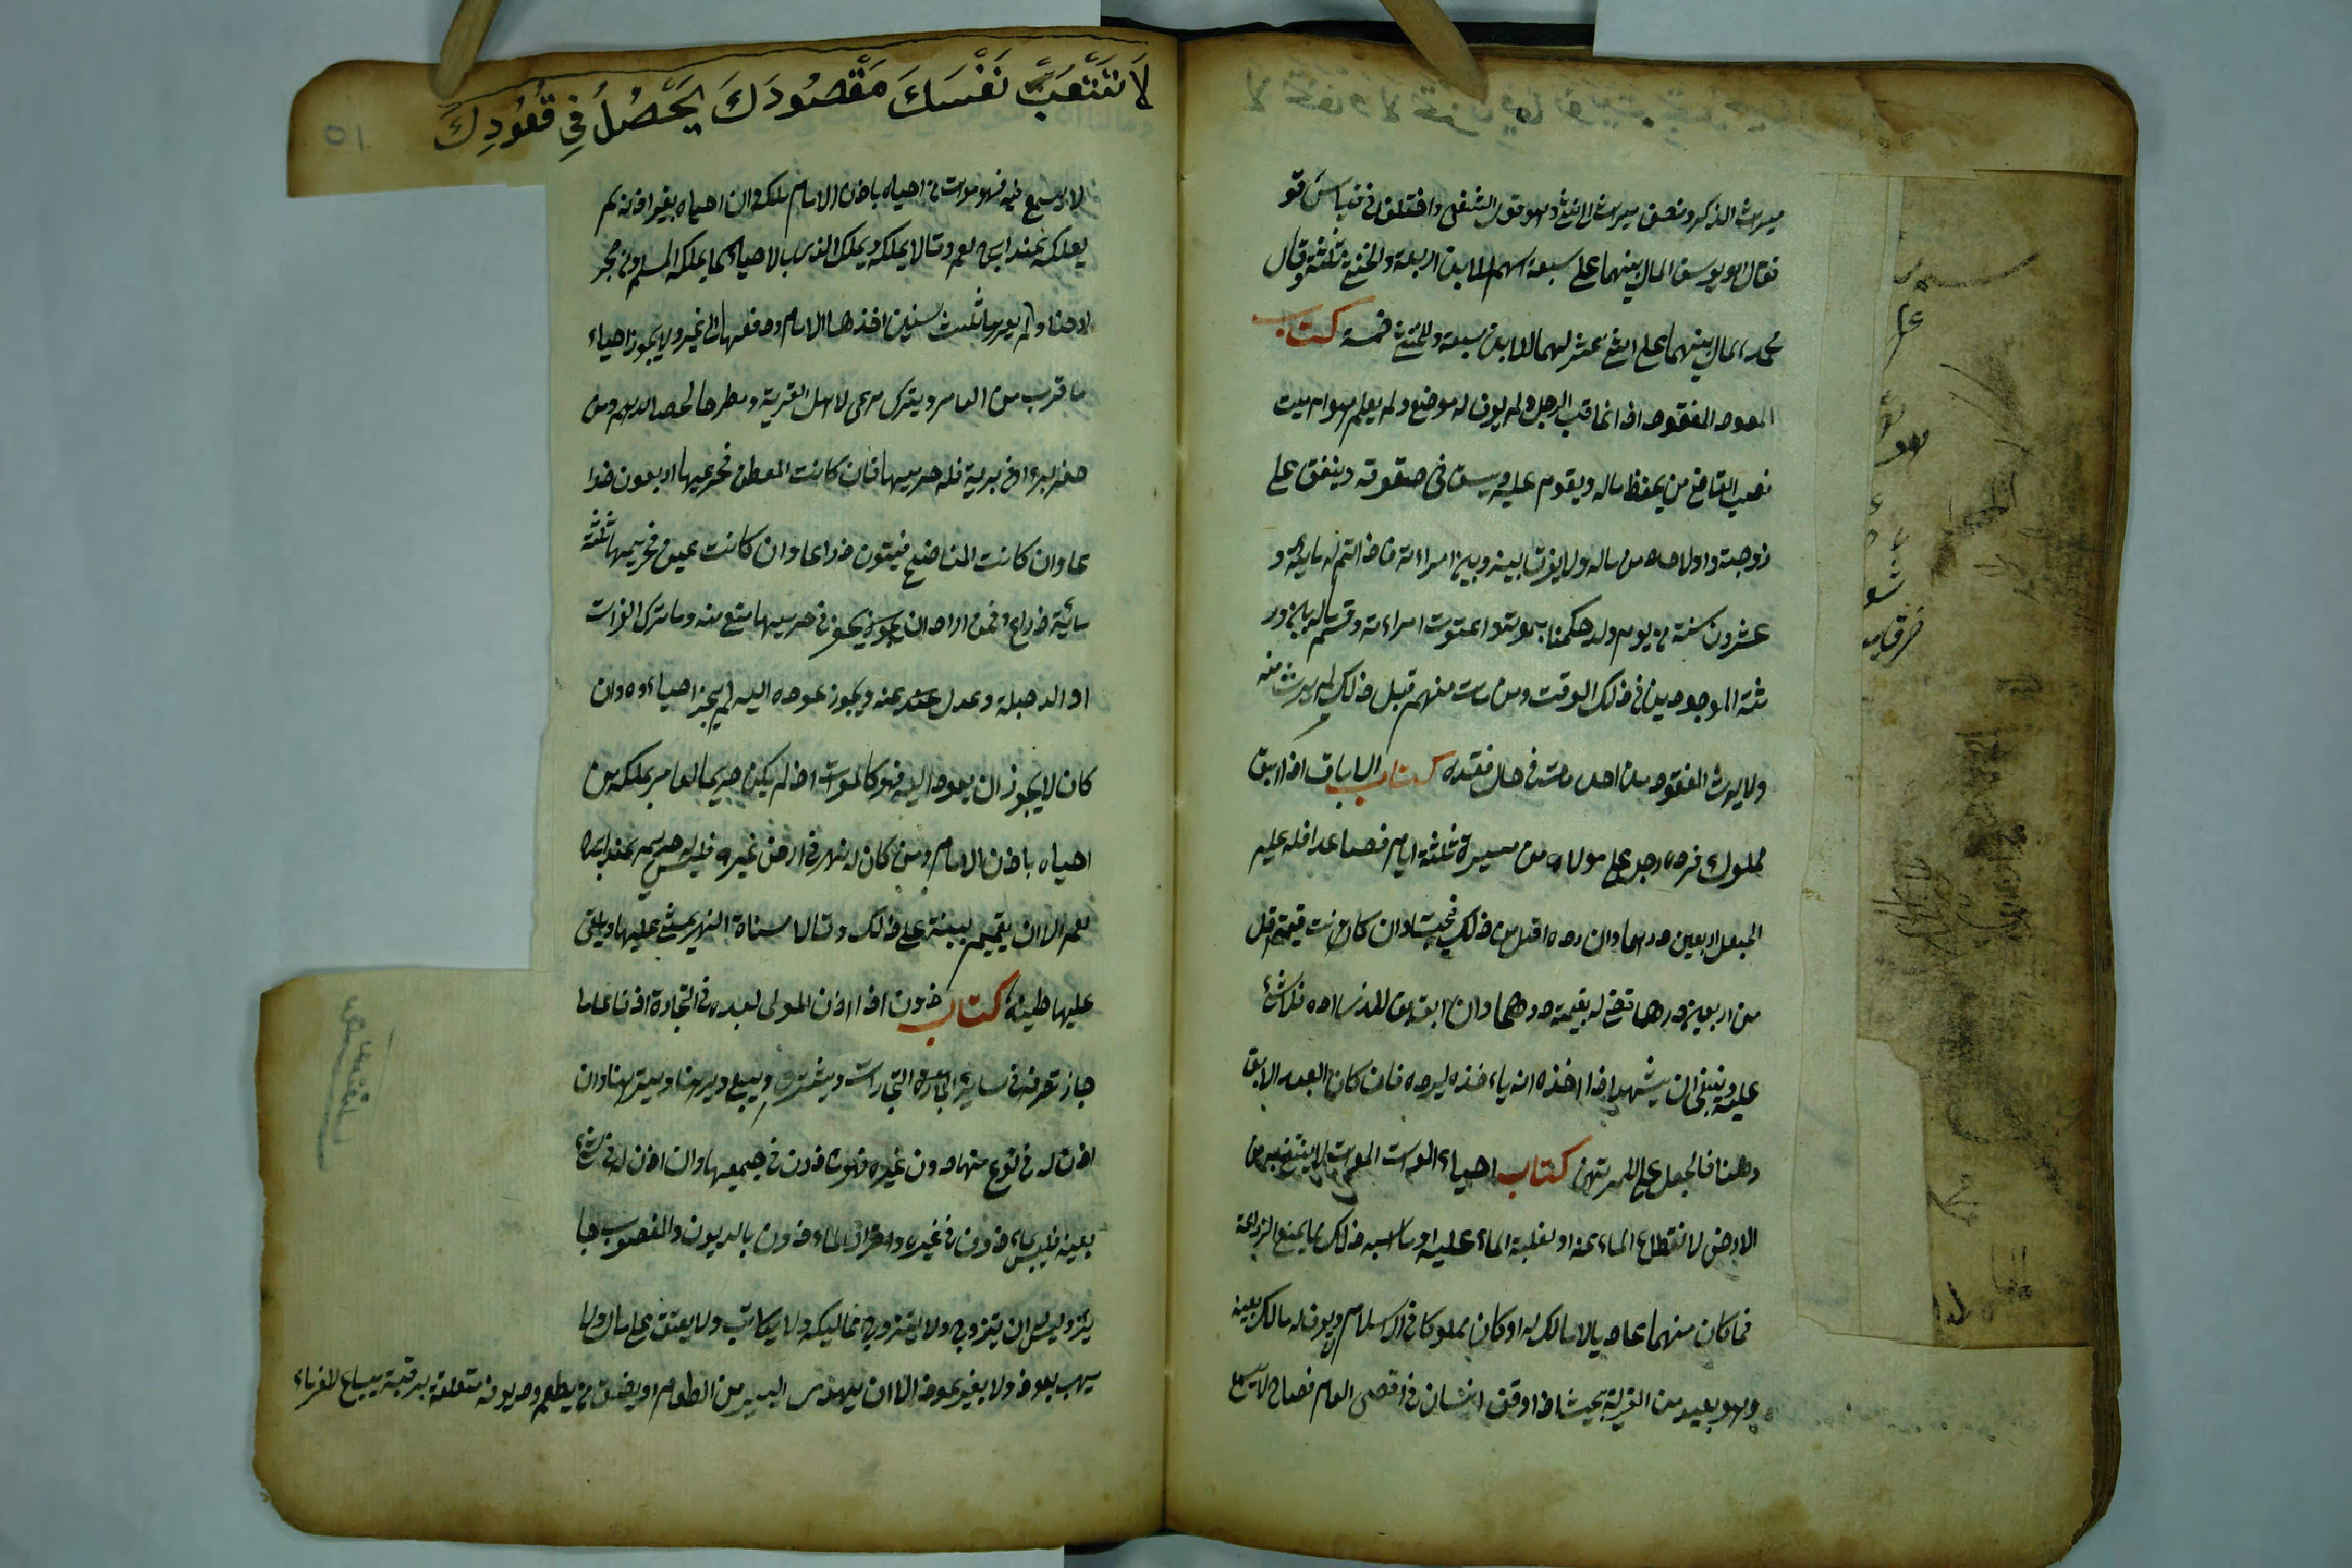 ميراث الذكر ونصف ميراث الانثى وهو قول الشعبي واختلفوا في قياس قو
فقال ابو يوسف المال بينهما على سبعة اسهم للابن اربعة وللخنثى ثلثة وقال
محمد المال بينهما على اثنى عشر سهما للابن سبعة وللخنثى خمسة كتاب
المفقود اذا غاب الرجل ولم يعرف له موضع ولم يعلم اهو ام ميت
نصب القاضى من يحفظ ماله ويقوم عليه ويستوفى حقوقه وينفق على
زوجته واولاده من ماله ولا يفرق بينه وبين امراءته فاذا اتم له مائة و
عشرون سنة من يوم ولد حكمنا بموته واعتدت امراءته وقسم ماله بين ور
ثته الموجودين في ذلك الوقت ومن مات منهم قبل ذلك لم يرث منه
ولا يرث المفقود من احد مات في حال فقده كتاب الاباق اذا ابق
مملوك فرده رجل على مولاه من مسيرة ثلثة ايام فصاعدا فله عليه
الجعل اربعين درهما وان رده اقل من ذلك فبحسابه وان كانت قيمته اقل
من اربعين درهما قضى له بقيمته درهما وان ابق من الذى رده فلا شئ
عليه وينبغى ان يشهد اذا اخذه انه ياءخذه ليرده فان كان العبد الابق
رهنا فالجعل على المرتهن كتاب احياء الموات الموات ما لا ينتفع به من
الارض لانقطاع الماء عنه او لغلبة الماء عليه او ما اشبه ذلك مما يمنع الزراعة
فما كان منهما عاديا لا مالك له او كان مملوكا في الاسلام ولا يعرف له مالك بعينه
وهو بعيد من القرية بحيث اذا وقف انسان في اقصى العامر فصاح لا يسمع
لَا تُتْعِبَ نَفْسَكَ مَقْصُودَكَ يَحْصُلُ فِي قُعُودِكَ
٥١
لا يسمع فيه فهو موات من احياه باذن الامام ملكه وان احياه بغير اذنه لم
يملكه عند ابى حنيفة وقالا يملكه ويملك الذمى بالاحياء كما يملكه المسلم ومن حجر
ارضا ولم يعمرها ثلث سنين اخذها الامام ودفعها الى غيره ولا يجوز احياء
ما قرب من العامر ويترك مرعى لاهل القرية ومطرحا لحصائدهم ومن
حفر بيرا في برية فله حريمها فان كانت للعطن فحريمها اربعون ذرا
عا وان كانت للناضح فستون ذراعا وان كانت عين فحريمها ثلثة
مائة ذراع فمن اراد ان يحفر في حريمها منع منه وما ترك الفرات
او الدجلة وعدل عنه ويجوز عوده اليه لم يجز احياءه وان
كان لا يجوز ان يعود اليه فهو كالموات اذا لم يكن حريما لعامر يملكه من
احياه باذن الامام ومن كان له نهر في ارض غيره فليس له حريم عند ابى
الا ان يقيم بينة على ذلك وقالا مسناة النهر يمشى عليها ويلقى
عليها طينه كتاب ماذون اذا اذن المولى لعبده في التجارة اذنا عاما
جاز تصرفه في سائر التجارات ويشترى ويبيع ويرهن ويسترهن وان
اذن له في نوع منها دون غيره فهو ماذون في جميعها وان اذن له في شئ
بعينه فليس بماءذون في غيره واقرار الماءذون بالديون والغصوب جا
يز وليس له ان يتزوج ولا يزوج مماليكه ولا يكاتب ولا يعتق على مال ولا
يهب بعوض ولا بغير عوض الا ان يهدى اليسير من الطعام او يضيف من يطعمه وديونه متعلقة برقبته يباع للغرماء